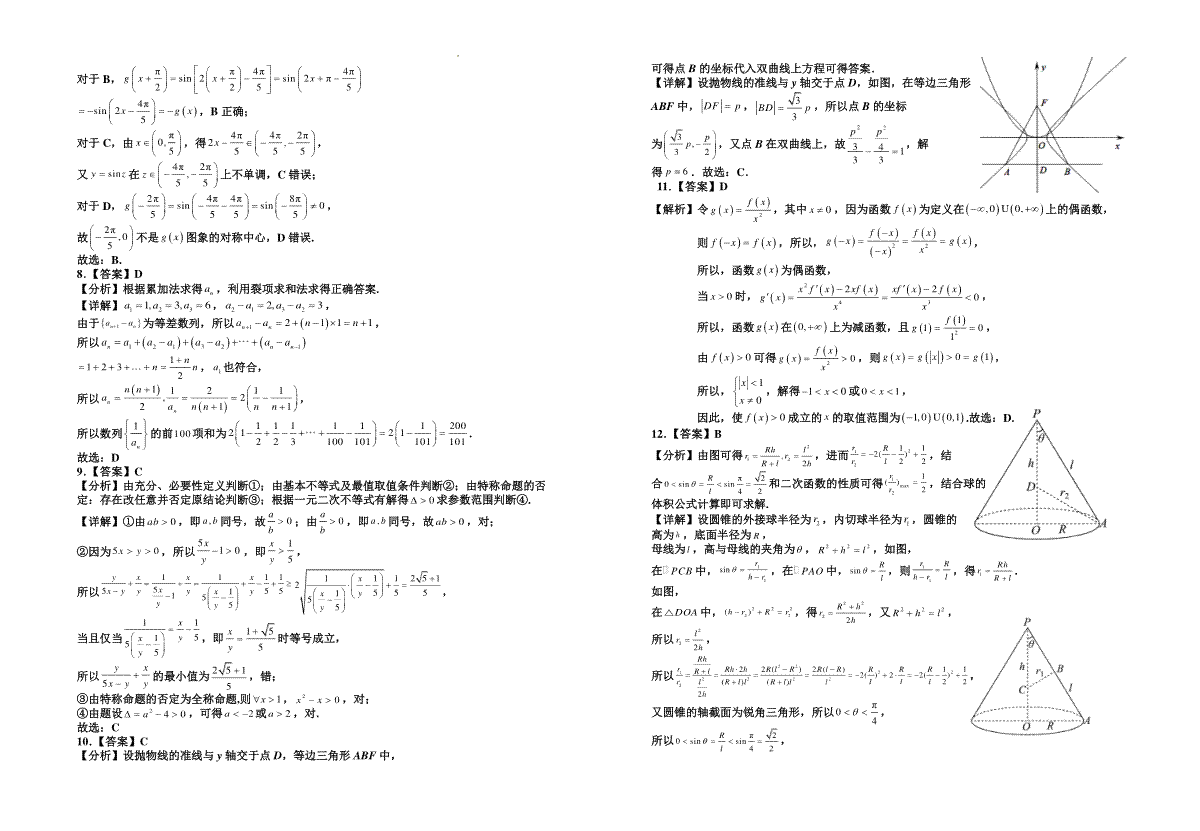 对于 B，g(x+π/2)=sin[2(x+π/2)-4π/5]=sin(2x+π-4π/5)
=-sin(2x-4π/5)=-g(x)，B 正确；
对于 C，由x∈(0,π/5)，得2x-4π/5∈(-4π/5,-2π/5)，
又 y=sinz 在z∈(-4π/5,-2π/5)上不单调，C 错误；
对于 D，g(-2π/5)=sin(-4π/5-4π/5)=sin(-8π/5)≠0，
故(-2π/5,0)不是g(x)图象的对称中心，D 错误.
故选：B.
8.【答案】D
【分析】根据累加法求得aₙ，利用裂项求和法求得正确答案.
【详解】a₁=1,a₂=3,a₃=6，a₂-a₁=2,a₃-a₂=3，
由于{aₙ₊₁-aₙ}为等差数列，所以aₙ₊₁-aₙ=2+(n-1)×1=n+1，
所以aₙ=a₁+(a₂-a₁)+(a₃-a₂)+⋯+(aₙ-aₙ₋₁)
=1+2+3+…+n=(1+n)/2 n，a₁也符合，
所以aₙ=n(n+1)/2,1/aₙ=2/(n(n+1))=2(1/n-1/(n+1))，
所以数列{1/aₙ}的前100项和为2(1-1/2+1/2-1/3+⋯+1/100-1/101)=2(1-1/101)=200/101.
故选：D
9.【答案】C
【分析】由充分、必要性定义判断①；由基本不等式及最值取值条件判断②；由特称命题的否
定：存在改任意并否定原结论判断③；根据一元二次不等式有解得Δ>0求参数范围判断④.
【详解】①由ab>0，即a,b同号，故a/b>0；由a/b>0，即a,b同号，故ab>0，对；
②因为5x>y>0，所以5x/y-1>0，即x/y>1/5，
所以y/(5x-y)+x/y=1/(5x/y-1)+x/y=1/(5(x/y-1/5))+x/y-1/5+1/5≥2√(1/(5(x/y-1/5))·(x/y-1/5))+1/5=(2√5+1)/5，
当且仅当1/(5(x/y-1/5))=x/y-1/5，即x/y=(1+√5)/5时等号成立，
所以y/(5x-y)+x/y的最小值为(2√5+1)/5，错；
③由特称命题的否定为全称命题,则∀x>1，x²-x>0，对；
④由题设Δ=a²-4>0，可得a<-2或a>2，对.
故选：C
10.【答案】C
【分析】设抛物线的准线与 y 轴交于点 D，等边三角形 ABF 中，
可得点 B 的坐标代入双曲线上方程可得答案.
【详解】设抛物线的准线与 y 轴交于点 D，如图，在等边三角形
ABF 中，|DF|=p，|BD|=√3/3 p，所以点 B 的坐标
为(√3/3 p,-p/2)，又点 B 在双曲线上，故(p²/3)/3-(p²/4)/3=1，解
得p=6．故选：C.
y
F
O
x
A
D
B
11.【答案】D
【解析】令g(x)=f(x)/x²，其中x≠0，因为函数f(x)为定义在(-∞,0)U(0,+∞)上的偶函数，
则f(-x)=f(x)，所以，g(-x)=f(-x)/(-x)²=f(x)/x²=g(x)，
所以，函数g(x)为偶函数，
当x>0时，g′(x)=(x²f′(x)-2xf(x))/x⁴=(xf′(x)-2f(x))/x³<0，
所以，函数g(x)在(0,+∞)上为减函数，且g(1)=f(1)/1²=0，
由f(x)>0可得g(x)=f(x)/x²>0，则g(x)=g(|x|)>0=g(1)，
所以，{|x|<1 x≠0，解得-1<x<0或0<x<1，
因此，使f(x)>0成立的x的取值范围为(-1,0)U(0,1).故选：D.
12.【答案】B
【分析】由图可得r₁=Rh/(R+l),r₂=l²/2h，进而r₁/r₂=-2(R/l-1/2)²+1/2，结
合0<sinθ=R/l<sinπ/4=√2/2和二次函数的性质可得(r₁/r₂)max=1/2，结合球的
体积公式计算即可求解.
【详解】设圆锥的外接球半径为r₂，内切球半径为r₁，圆锥的
高为h，底面半径为R，
母线为l，高与母线的夹角为θ，R²+h²=l²，如图，
在 PCB 中，sinθ=r₁/(h-r₁)，在 PAO 中，sinθ=R/l，则r₁/(h-r₁)=R/l，得r₁=Rh/(R+l).
如图，
在△DOA中，(h-r₂)²+R²=r₂²，得r₂=(R²+h²)/2h，又R²+h²=l²，
所以r₂=l²/2h，
所以r₁/r₂=(Rh/(R+l))/(l²/2h)=Rh·2h/((R+l)l²)=2R(l²-R²)/((R+l)l²)=2R(l-R)/l²=-2(R/l)²+2·R/l=-2(R/l-1/2)²+1/2，
又圆锥的轴截面为锐角三角形，所以0<θ<π/4，
所以0<sinθ=R/l<sinπ/4=√2/2，
P
θ
h
l
D
r₂
O
R
A
P
θ
h
B
r₁
C
l
O
R
A